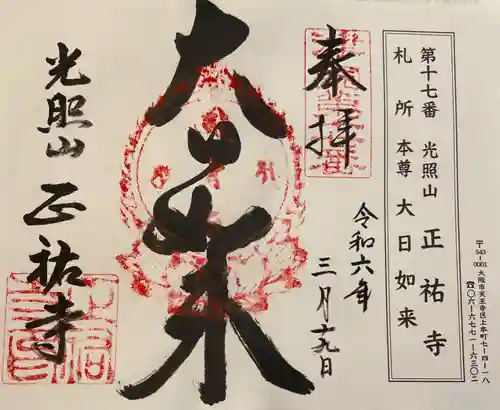 〒543-0001 大阪市天王寺区上本町七-四-一八
☎〇六-六七七一-六三〇二
第十七番 光照山 正祐寺
札所 本尊 大日如来
奉拝
令和六年
三月十九日
大日如来
光照山 正祐寺